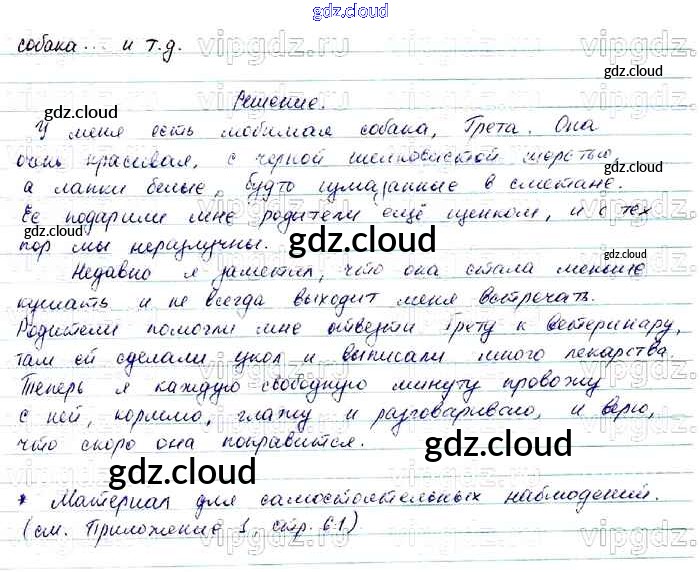 gdz.cloud
собака... и т.д.
gdz.cloud
gdz.cloud
Решение.
У меня есть любимая собака, Грета. Она
очень красивая, с черной шелковистой шерстью,
а лапки белые, будто измазанные в сметане.
Ее подарили мне родители ещё щенком, и с тех
пор мы неразлучны.
gdz.cloud gdz.cloud gdz.cloud
Недавно я заметил, что она стала меньше
кушать и не всегда выходит меня встречать.
Родители помогли мне отвезти Грету к ветеринару,
там ей сделали укол и выписали много лекарства.
Теперь я каждую свободную минуту провожу
с ней, кормлю, глажу и разговариваю, и верю,
что скоро она поправится.
gdz.cloud
gdz.cloud
* Материал для самостоятельных наблюдений.
(см. Приложение 1, стр. 61)
gdz.cloud